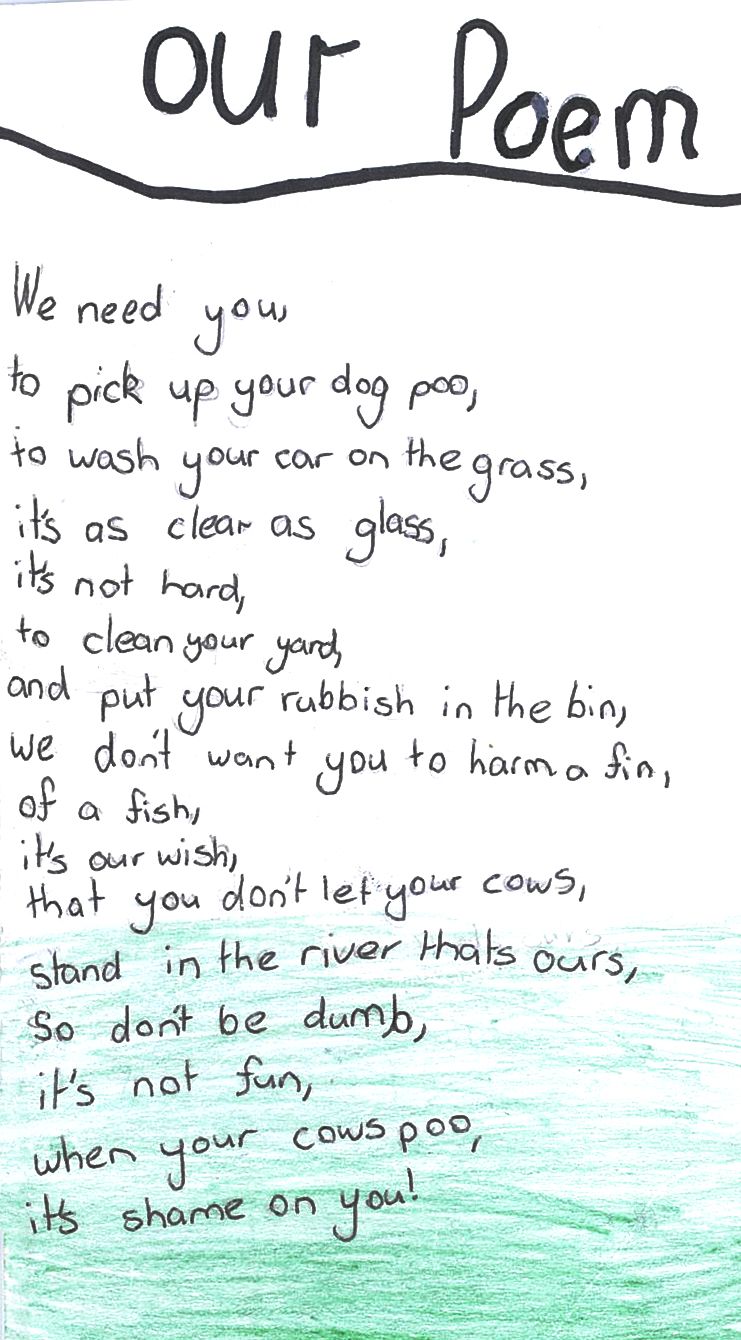 our Poem
We need you,
to pick up your dog poo,
to wash your car on the grass,
it's as clear as glass,
it's not hard,
to clean your yard,
and put your rubbish in the bin,
we don't want you to harm a fin,
of a fish,
it's our wish,
that you don't let your cows,
stand in the river thats ours,
So don't be dumb,
it's not fun,
when your cows poo,
it's shame on you!